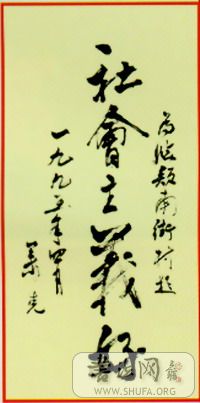 为临颍南街村题
社會主義好
一九九五年四月
书法网
WWW.SHUFA.ORG